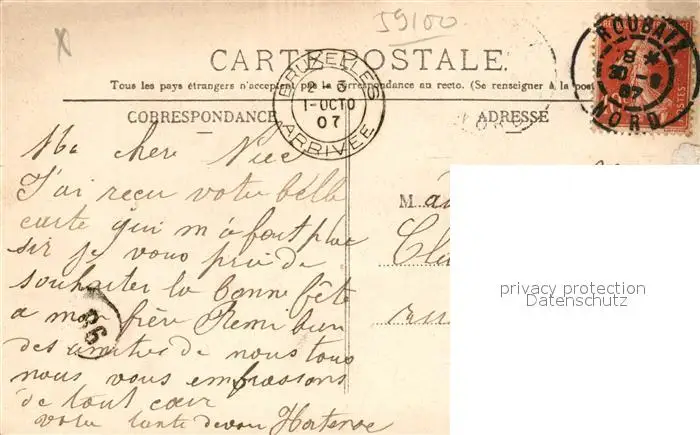 59100
CARTE POSTALE.
Tous les pays étrangers n'acceptent pas la correspondance au recto. (Se renseigner à la poste
CORRESPONDANCE
ADRESSE
BRUXELLES
1-OCTO
07
ARRIVÉE
ROUBAIX
8 *
30 -
07
NORD
Ma cher Niece
J'ai reçu votre bélle
carte qui m'a fait plai
sir je vous prie de
souhaiter la bonne fête
a mon frère Remi bien
des amities de nous tous
nous vous embrassons
de tout cœur
votre tante devouée Hortense
M
Cle
rue
36
privacy protection
Datenschutz